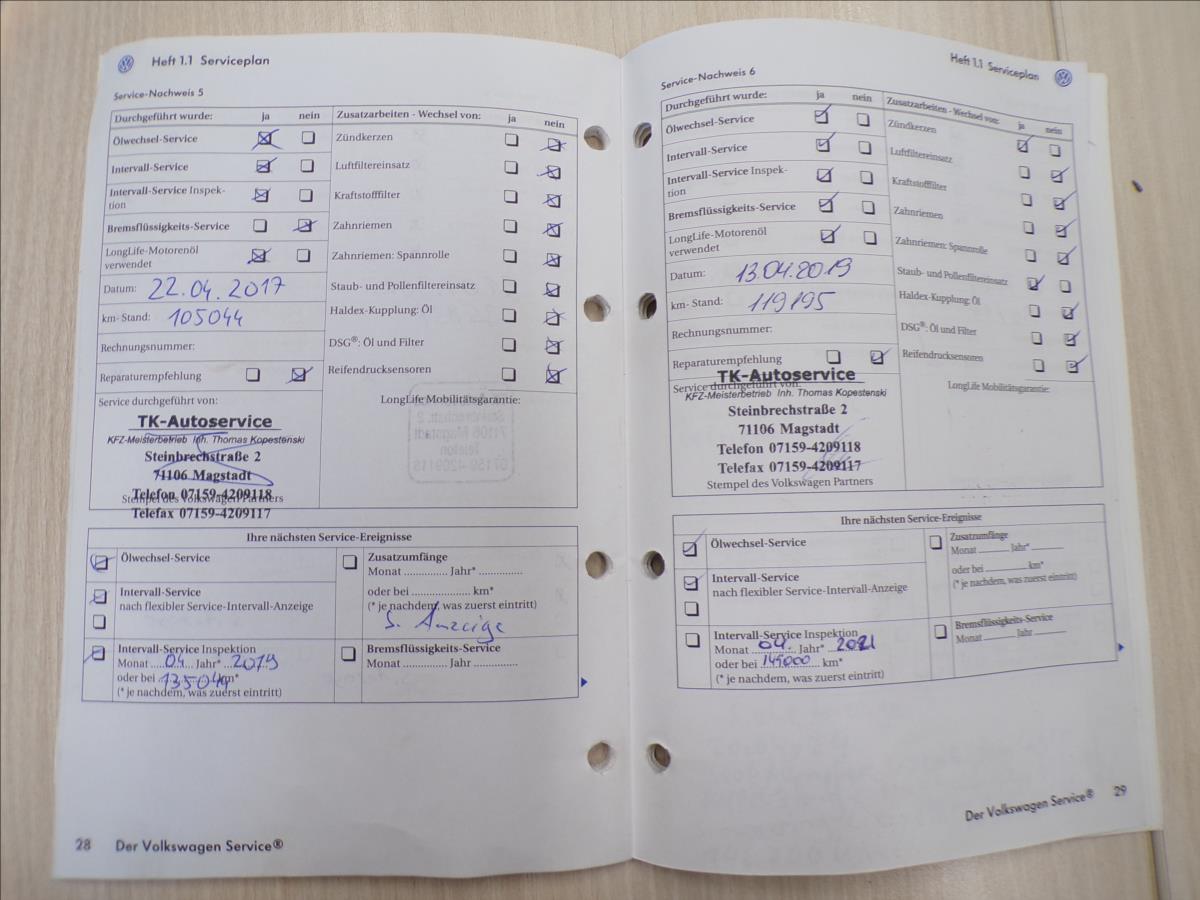 Heft 1.1 Serviceplan
Service-Nachweis 5
Durchgeführt wurde: ja nein
Ölwechsel-Service
Intervall-Service
Intervall-Service Inspek-
tion
Bremsflüssigkeits-Service
LongLife-Motorenöl
verwendet
Datum: 22.04.2017
km-Stand: 105044
Rechnungsnummer:
Reparaturempfehlung
Service durchgeführt von:
TK-Autoservice
KFZ-Meisterbetrieb Inh. Thomas Kopestenski
Steinbrechstraße 2
71106 Magstadt
Telefon 07159-4209118
Stempel des Volkswagen Partners
Telefax 07159-4209117
Zusatzarbeiten - Wechsel von: ja nein
Zündkerzen
Luftfiltereinsatz
Kraftstofffilter
Zahnriemen
Zahnriemen: Spannrolle
Staub- und Pollenfiltereinsatz
Haldex-Kupplung: Öl
DSG®: Öl und Filter
Reifendrucksensoren
LongLife Mobilitätsgarantie:
Ihre nächsten Service-Ereignisse
Ölwechsel-Service
Intervall-Service
nach flexibler Service-Intervall-Anzeige
Intervall-Service Inspektion
Monat 04 Jahr* 2019
oder bei 135044 km*
(* je nachdem, was zuerst eintritt)
Zusatzumfänge
Monat .............. Jahr* ..............
oder bei .................... km*
(* je nachdem, was zuerst eintritt)
S. Anzeige
Bremsflüssigkeits-Service
Monat .............. Jahr ..............
28 Der Volkswagen Service®
Heft 1.1 Serviceplan
Service-Nachweis 6
Durchgeführt wurde: ja nein
Ölwechsel-Service
Intervall-Service
Intervall-Service Inspek-
tion
Bremsflüssigkeits-Service
LongLife-Motorenöl
verwendet
Datum: 13.04.2019
km-Stand: 119195
Rechnungsnummer:
Reparaturempfehlung
TK-Autoservice
Service durchgeführt von:
KFZ-Meisterbetrieb Inh. Thomas Kopestenski
Steinbrechstraße 2
71106 Magstadt
Telefon 07159-4209118
Telefax 07159-4209117
Stempel des Volkswagen Partners
Zusatzarbeiten - Wechsel von: ja nein
Zündkerzen
Luftfiltereinsatz
Kraftstofffilter
Zahnriemen
Zahnriemen: Spannrolle
Staub- und Pollenfiltereinsatz
Haldex-Kupplung: Öl
DSG®: Öl und Filter
Reifendrucksensoren
LongLife Mobilitätsgarantie:
Ihre nächsten Service-Ereignisse
Ölwechsel-Service
Intervall-Service
nach flexibler Service-Intervall-Anzeige
Intervall-Service Inspektion
Monat 04. Jahr* 2021
oder bei 149000 km*
(* je nachdem, was zuerst eintritt)
Zusatzumfänge
Monat ........ Jahr* ........
oder bei ............ km*
(* je nachdem, was zuerst eintritt)
Bremsflüssigkeits-Service
Monat ........ Jahr ........
Der Volkswagen Service® 29